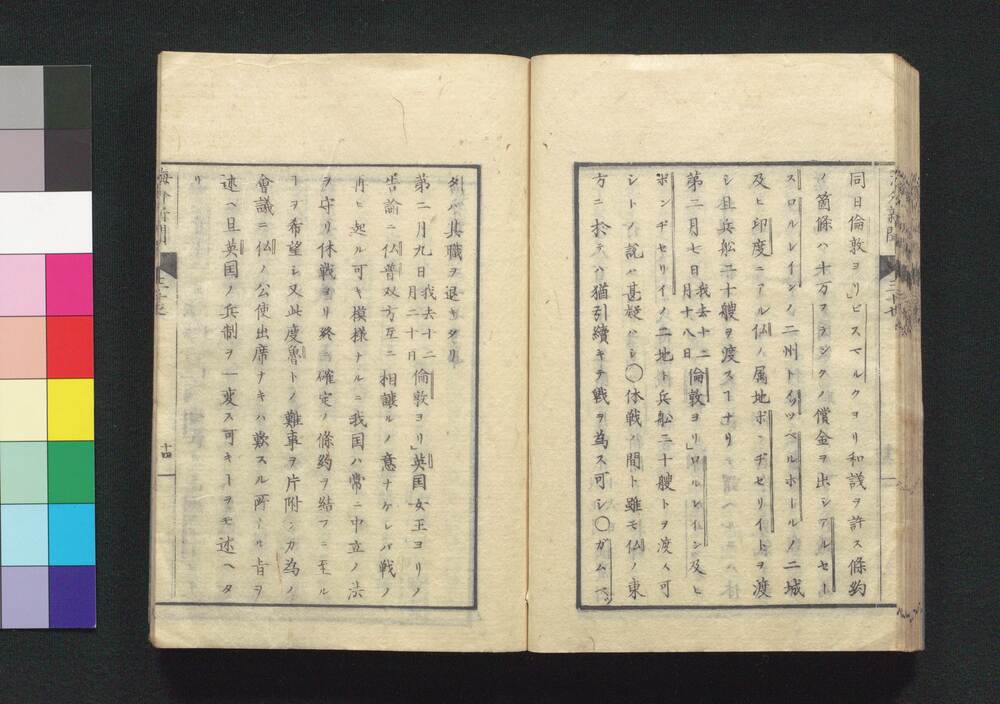 同日倫敦ヨリ」ビスマルクヨリ和議ヲ許ス條約
ノ箇條ハ十万フランクノ償金ヲ出シアルセー
スロルレインノ二州トメッツベルホールノ二城
及ヒ印度ニアル仏ノ属地ボンヂセリイトヲ渡
シ且兵船二十艘ヲ渡スヿナリ
第二月七日我去十二月十八日倫敦ヨリ」ロルレイン及ヒ
ボンヂセリイノ二地ト兵船二十艘トヲ渡ス可
シトノ説ハ甚疑ハシ〇休戦ノ間ト雖モ仏ノ東
方ニ於テハ猶引續キテ戦ヲ為ス可シ〇ガムベツ
タハ其職ヲ退キタリ
第二月九日我去十二月二十日倫敦ヨリ」英国女王ヨリノ
告諭ニ仏普双方互ニ相譲ルノ意ナケレバ戦ノ
再ヒ起ル可キ模様ナルニ我国ハ常ニ中立ノ法
ヲ守リ休戦ヲリ終ニ確定ノ條約ヲ結フニ至ル
ヿヲ希望シ又此度魯トノ難事ヲ片附ンカ為ノ
會議ニ仏ノ公使出席ナキハ歎スル所ナル旨ヲ
述ヘ且英国ノ兵制ヲ一変ス可キヿヲモ述ヘタ
リ
海外新聞
十四